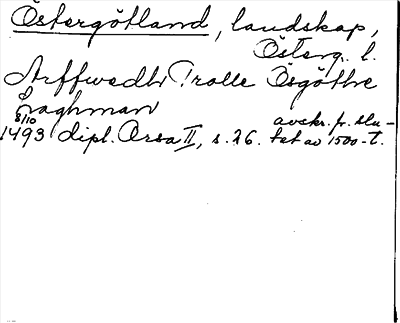 Östergötland, landskap,
Österg. l.
Arffwedh Trolle Ösgöthe
Laghman
8/10 avskr. fr. slu-
1493 dipl. Arsa II, s. 26. tet av 1500-t.